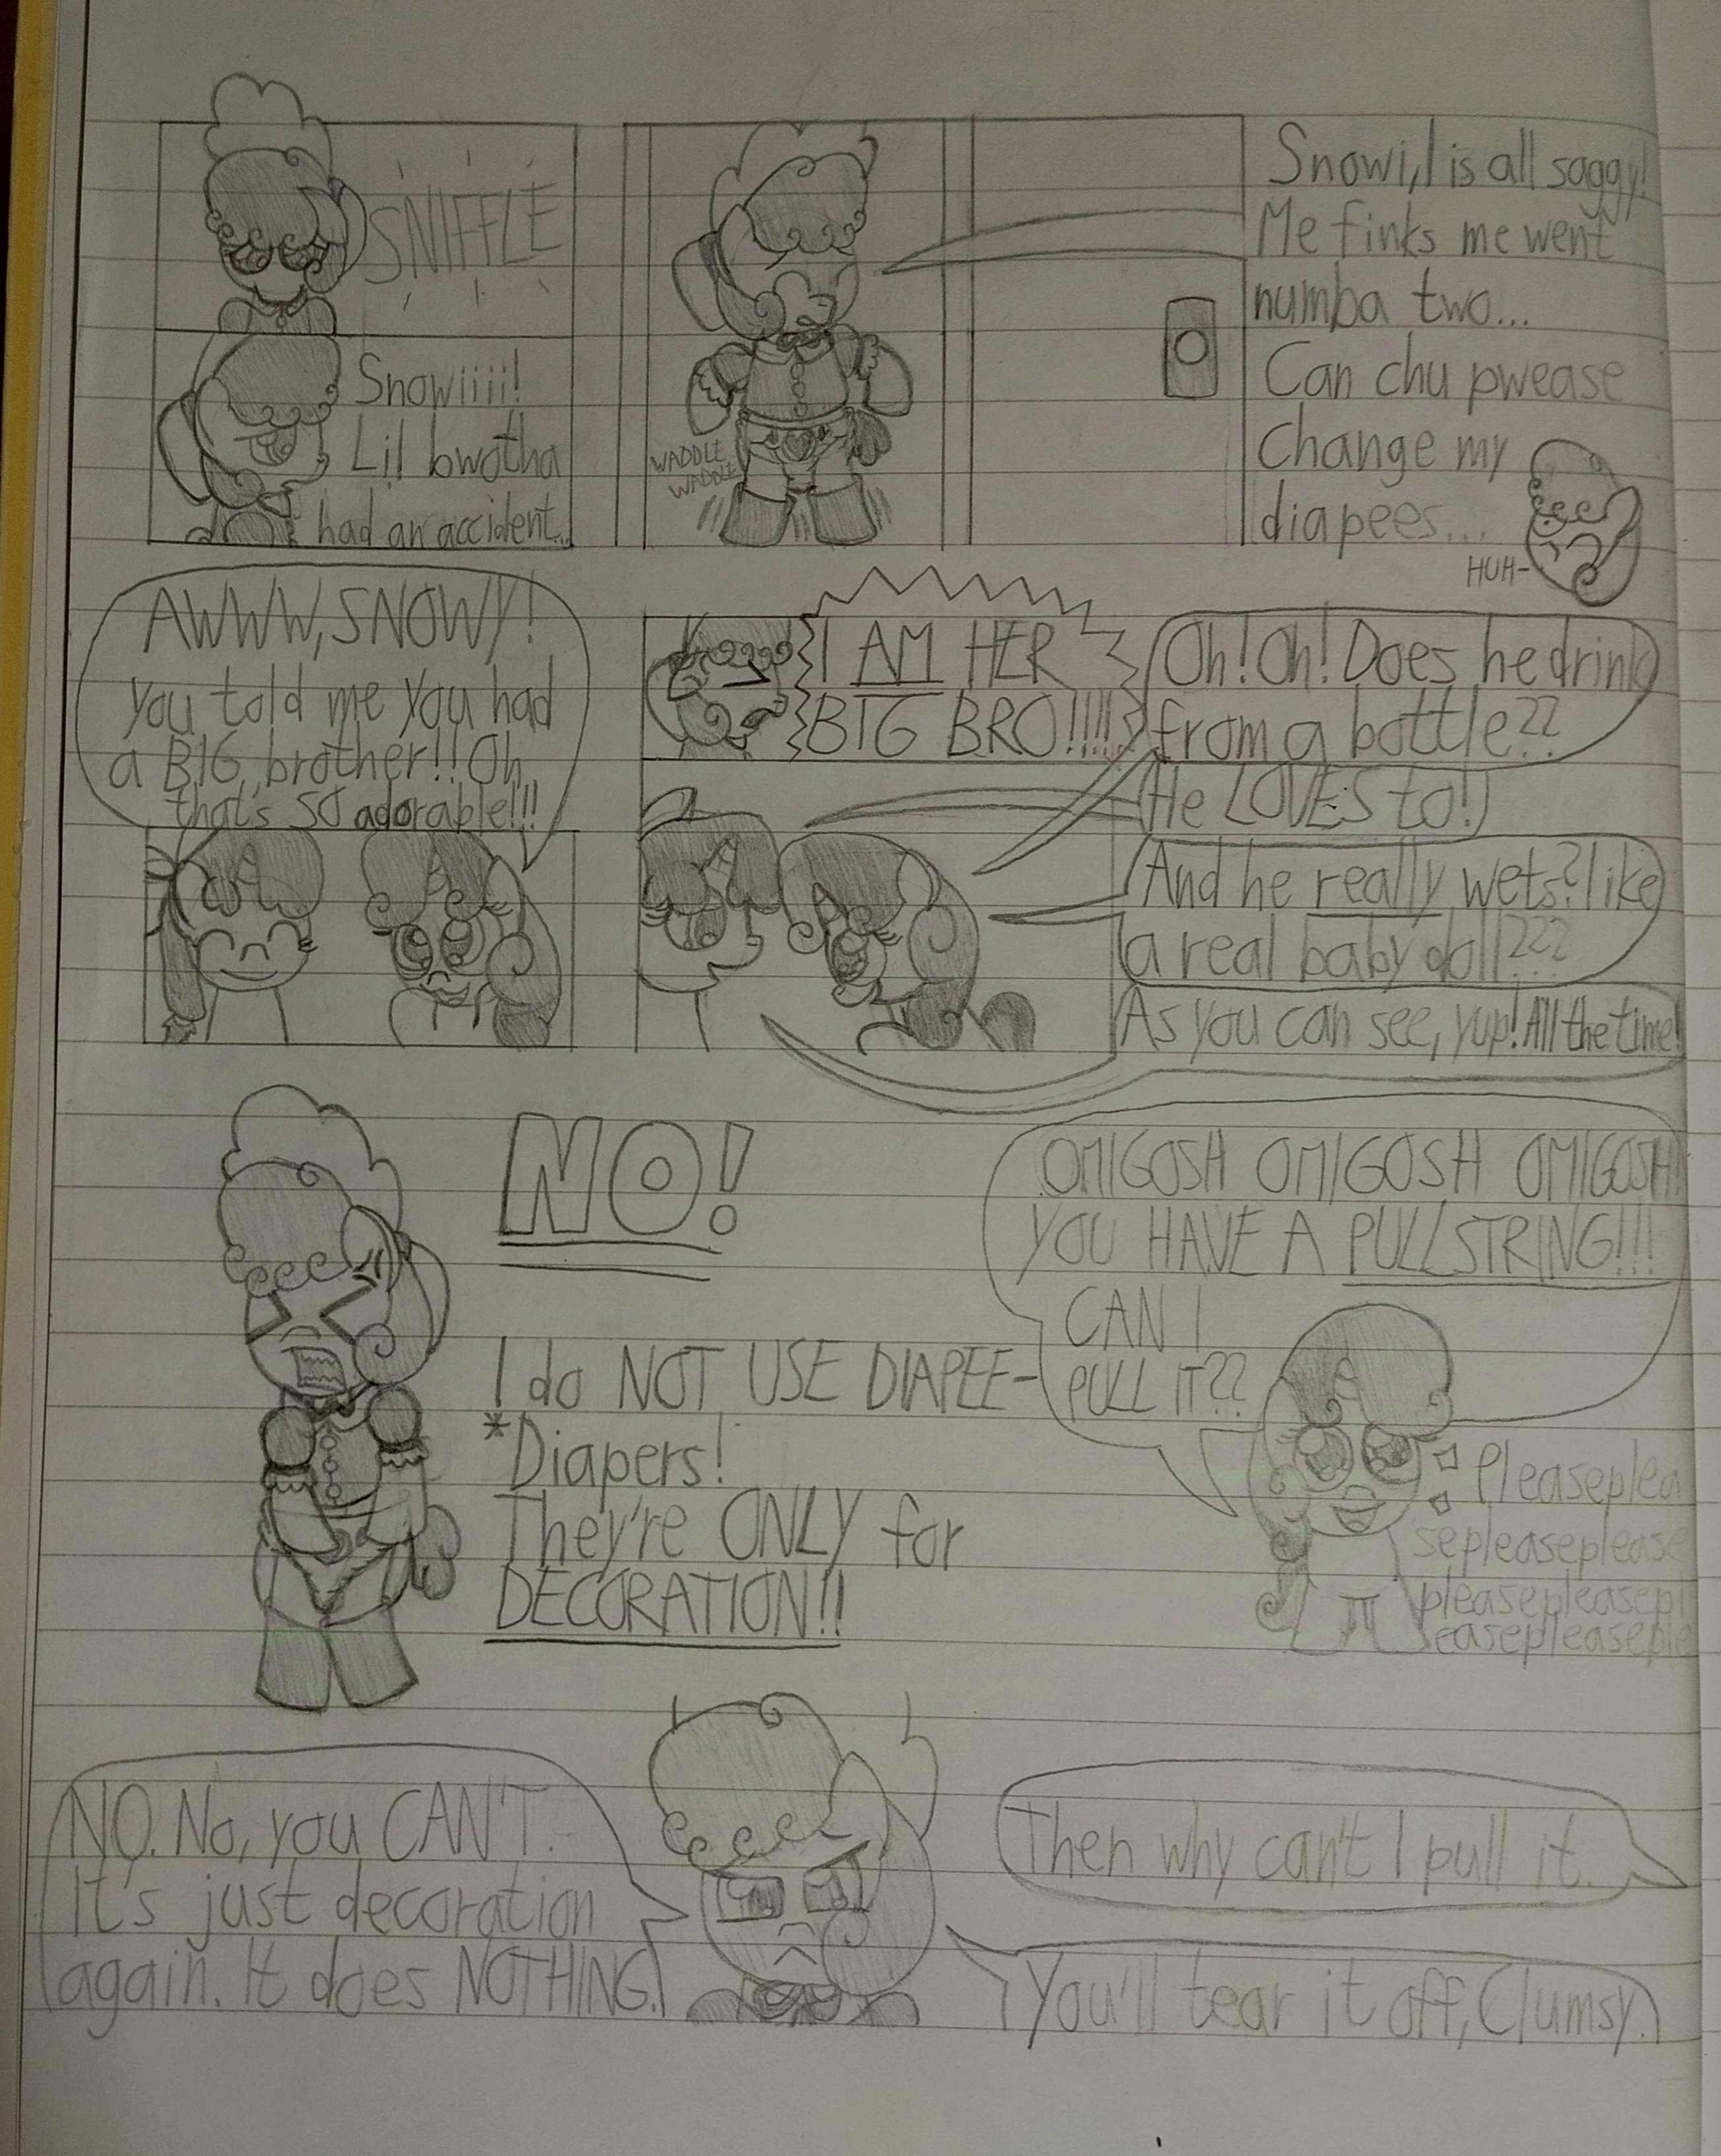 SNIFFLE
Snowiiii!
Lil bwotha
had an accident...
WADDLE
WADDLE
Snowi, I is all saggy!
Me finks me went
numba two...
Can chu pwease
change my
diapees...
HUH-
AWWW, SNOWY!
you told me you had
a BIG brother!! Oh,
that's SO adorable!!!
I AM HER
BIG BRO!!!!
Oh! Oh! Does he drink
from a bottle??
He LOVES to!
And he really wets? like
a real baby doll???
As you can see, yup! All the time!
NO!
I do NOT USE DIAPEE-
*Diapers!
They're ONLY for
DECORATION!!
OMIGOSH OMIGOSH OMIGOSH!
YOU HAVE A PULLSTRING!!!
CAN I
PULL IT??
Pleaseplea
sepleaseplease
pleasepleasepl
easepleaseple
NO. No, you CAN'T.
It's just decoration
again. It does NOTHING.
Then why can't I pull it.
You'll tear it off, Clumsy.